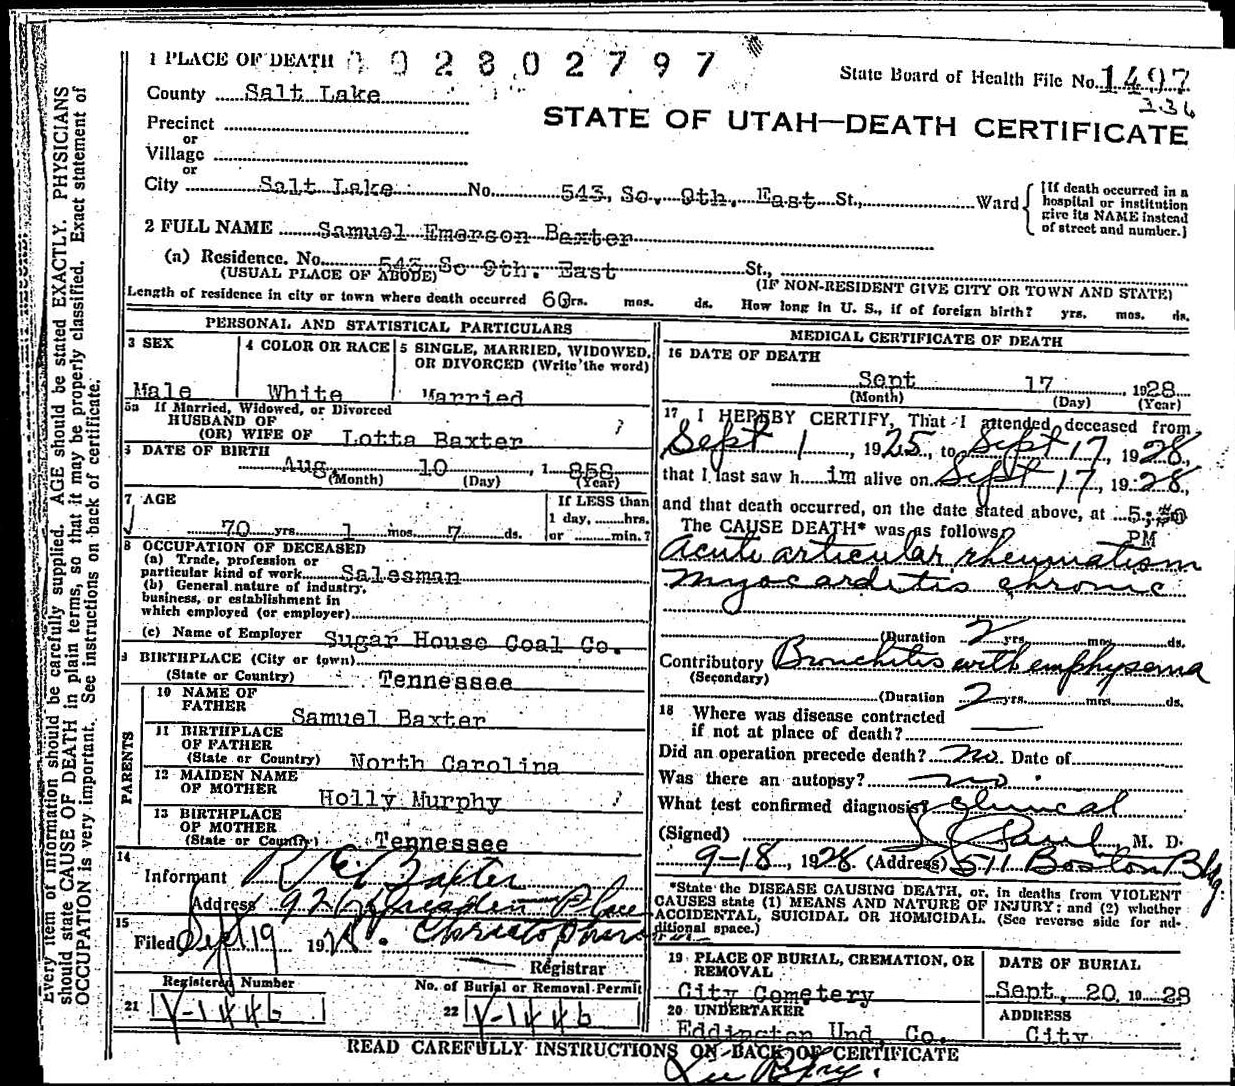 1 PLACE OF DEATH 002802797
State Board of Health File No. 1497
336
County Salt Lake
STATE OF UTAH—DEATH CERTIFICATE
Precinct
or
Village
or
City Salt Lake No. 543, So. 9th. East St., Ward
[If death occurred in a
hospital or institution
give its NAME instead
of street and number.]
2 FULL NAME Samuel Emerson Baxter
(a) Residence. No. 543 So 9th. East St.,
(USUAL PLACE OF ABODE) (IF NON-RESIDENT GIVE CITY OR TOWN AND STATE)
Length of residence in city or town where death occurred 60 yrs. mos. ds. How long in U. S., if of foreign birth? yrs. mos. ds.
PERSONAL AND STATISTICAL PARTICULARS
3 SEX 4 COLOR OR RACE 5 SINGLE, MARRIED, WIDOWED,
OR DIVORCED (Write the word)
Male White Married
5a If Married, Widowed, or Divorced
HUSBAND OF
(OR) WIFE OF Lotta Baxter
6 DATE OF BIRTH
Aug 10, 1 858
(Month) (Day) (Year)
7 AGE If LESS than
1 day, hrs.
70 yrs. 1 mos. 7 ds. or min.?
8 OCCUPATION OF DECEASED
(a) Trade, profession or
particular kind of work Salesman
(b) General nature of industry,
business, or establishment in
which employed (or employer)
(c) Name of Employer Sugar House Coal Co.
9 BIRTHPLACE (City or town)
(State or Country) Tennessee
PARENTS
10 NAME OF
FATHER Samuel Baxter
11 BIRTHPLACE
OF FATHER
(State or Country) North Carolina
12 MAIDEN NAME
OF MOTHER Holly Murphy
13 BIRTHPLACE
OF MOTHER
(State or Country) Tennessee
14
Informant R E Baxter
Address 926 Place
15
Filed Sept 19 1928.
Registrar
Registered Number No. of Burial or Removal Permit
21 V-1446 22 V-1446
MEDICAL CERTIFICATE OF DEATH
16 DATE OF DEATH
Sept 17 1928
(Month) (Day) (Year)
17 I HEREBY CERTIFY, That I attended deceased from
Sept 1, 1925, to Sept 17, 1928,
that I last saw him alive on Sept 17, 1928,
and that death occurred, on the date stated above, at 5:50
The CAUSE DEATH* was as follows: PM
Acute articular rheumatism
myocarditis chronic
(Duration 2 yrs. mos. ds.
Contributory Bronchitis with emphysema
(Secondary)
(Duration 2 yrs. mos. ds.
18 Where was disease contracted
if not at place of death?
Did an operation precede death? no. Date of
Was there an autopsy? no.
What test confirmed diagnosis? clinical
(Signed) M. D.
9-18, 1928 (Address) 511 Boston Bldg.
*State the DISEASE CAUSING DEATH, or, in deaths from VIOLENT
CAUSES state (1) MEANS AND NATURE OF INJURY; and (2) whether
ACCIDENTAL, SUICIDAL OR HOMICIDAL. (See reverse side for ad-
ditional space.)
19 PLACE OF BURIAL, CREMATION, OR
REMOVAL
City Cemetery
DATE OF BURIAL
Sept. 20 1928
20 UNDERTAKER
Eddington Und. Co.
ADDRESS
City
READ CAREFULLY INSTRUCTIONS ON BACK OF CERTIFICATE
Every item of information should be carefully supplied. AGE should be stated EXACTLY. PHYSICIANS
should state CAUSE OF DEATH in plain terms, so that it may be properly classified. Exact statement of
OCCUPATION is very important. See instructions on back of certificate.